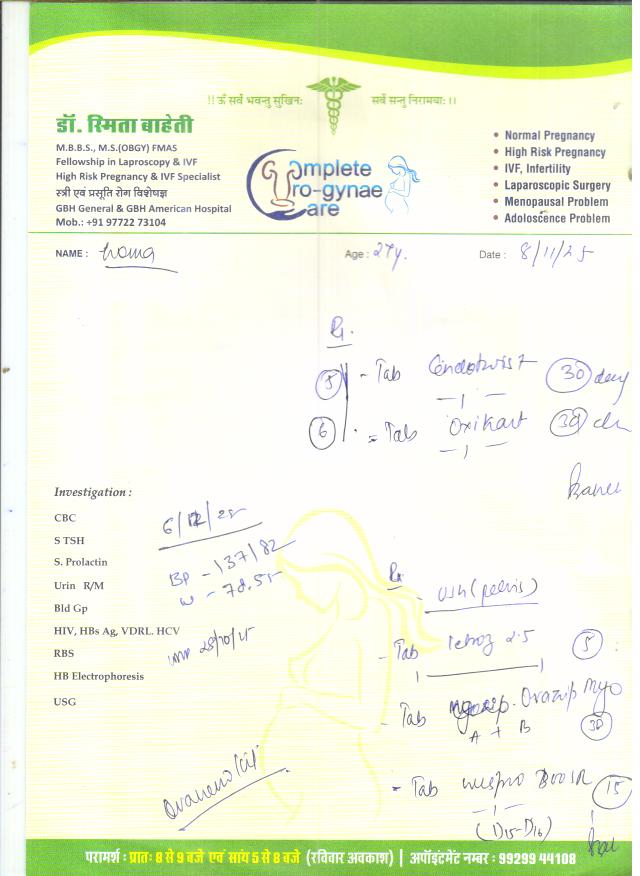 !! ॐ सर्वे भवन्तु सुखिनः सर्वे सन्तु निरामयाः ।।
डॉ. स्मिता बाहेती
M.B.B.S., M.S.(OBGY) FMAS
Fellowship in Laproscopy & IVF
High Risk Pregnancy & IVF Specialist
स्त्री एवं प्रसूति रोग विशेषज्ञ
GBH General & GBH American Hospital
Mob.: +91 97722 73104
Complete
Uro-gynae
Care
• Normal Pregnancy
• High Risk Pregnancy
• IVF, Infertility
• Laparoscopic Surgery
• Menopausal Problem
• Adoloscence Problem
NAME : Age : 27y. Date : 8/11/25
Rx.
5 - Tab 30 days
6 - Tab Oxikart 30
Investigation :
CBC
S TSH
S. Prolactin
Urin R/M
Bld Gp
HIV, HBs Ag, VDRL. HCV
RBS
HB Electrophoresis
USG
6/12/25
BP - 137/82
W - 78.55
LMP 28/10/25
Rx
USG (pelvis)
- Tab Letroz 2.5 5
- Tab Ovazip Myo
A + B 30
- Tab 15
(D15-D16)
परामर्श : प्रातः 8 से 9 बजे एवं सांय 5 से 8 बजे (रविवार अवकाश) | अपॉइंटमेंट नम्बर : 99299 44108